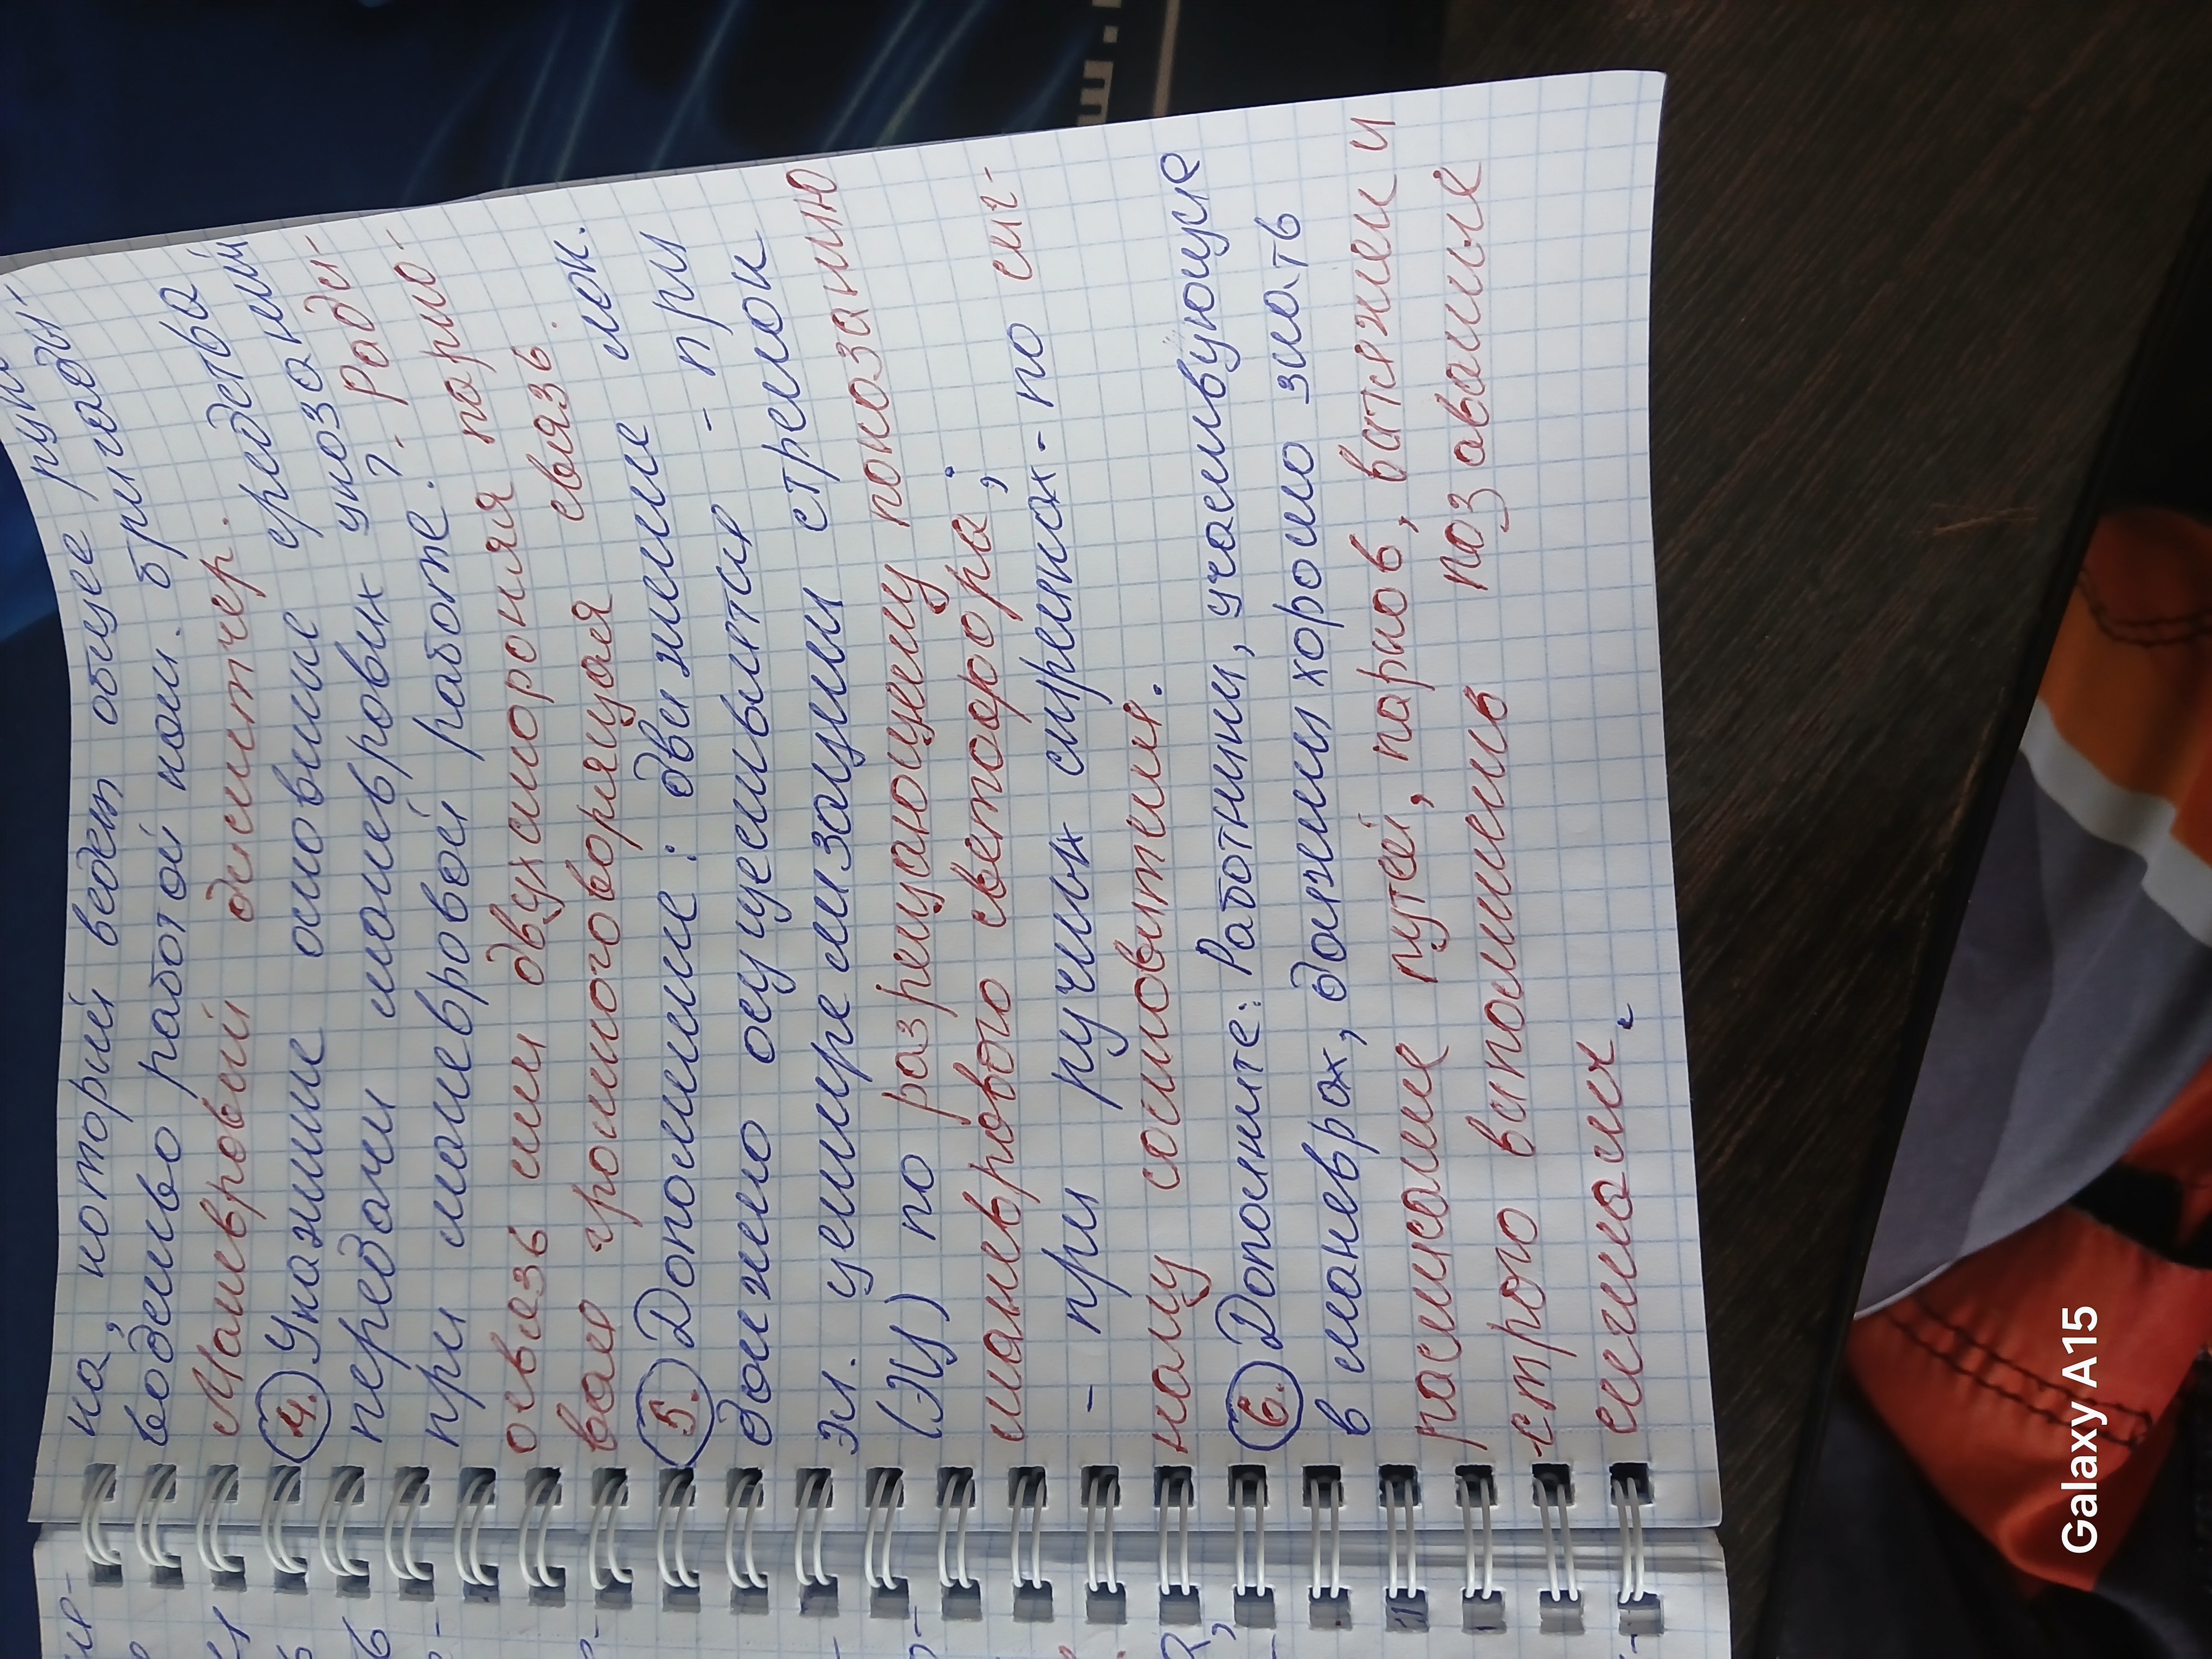 на, который ведет общее руко-
водство работой ман. бригады
Маневровый диспетчер.
4. Укажите основные средства
передачи маневровых указаний
при маневровой работе. ?. Ради-
освязь или двухсторонняя парко-
вая громкоговорящая связь.
5. Дополните: движение лок.
должно осуществляться - при
эл. централизации стрелок
(ЭЦ) по разрешающему показанию
маневрового светофора;
- при ручных стрелках - по сиг-
налу составителя.
6. Дополните: Работники, участвующие
в маневрах, должны хорошо знать
расписание путей, парков, вытяжки и
строго выполнять
сигналы.
Galaxy A15